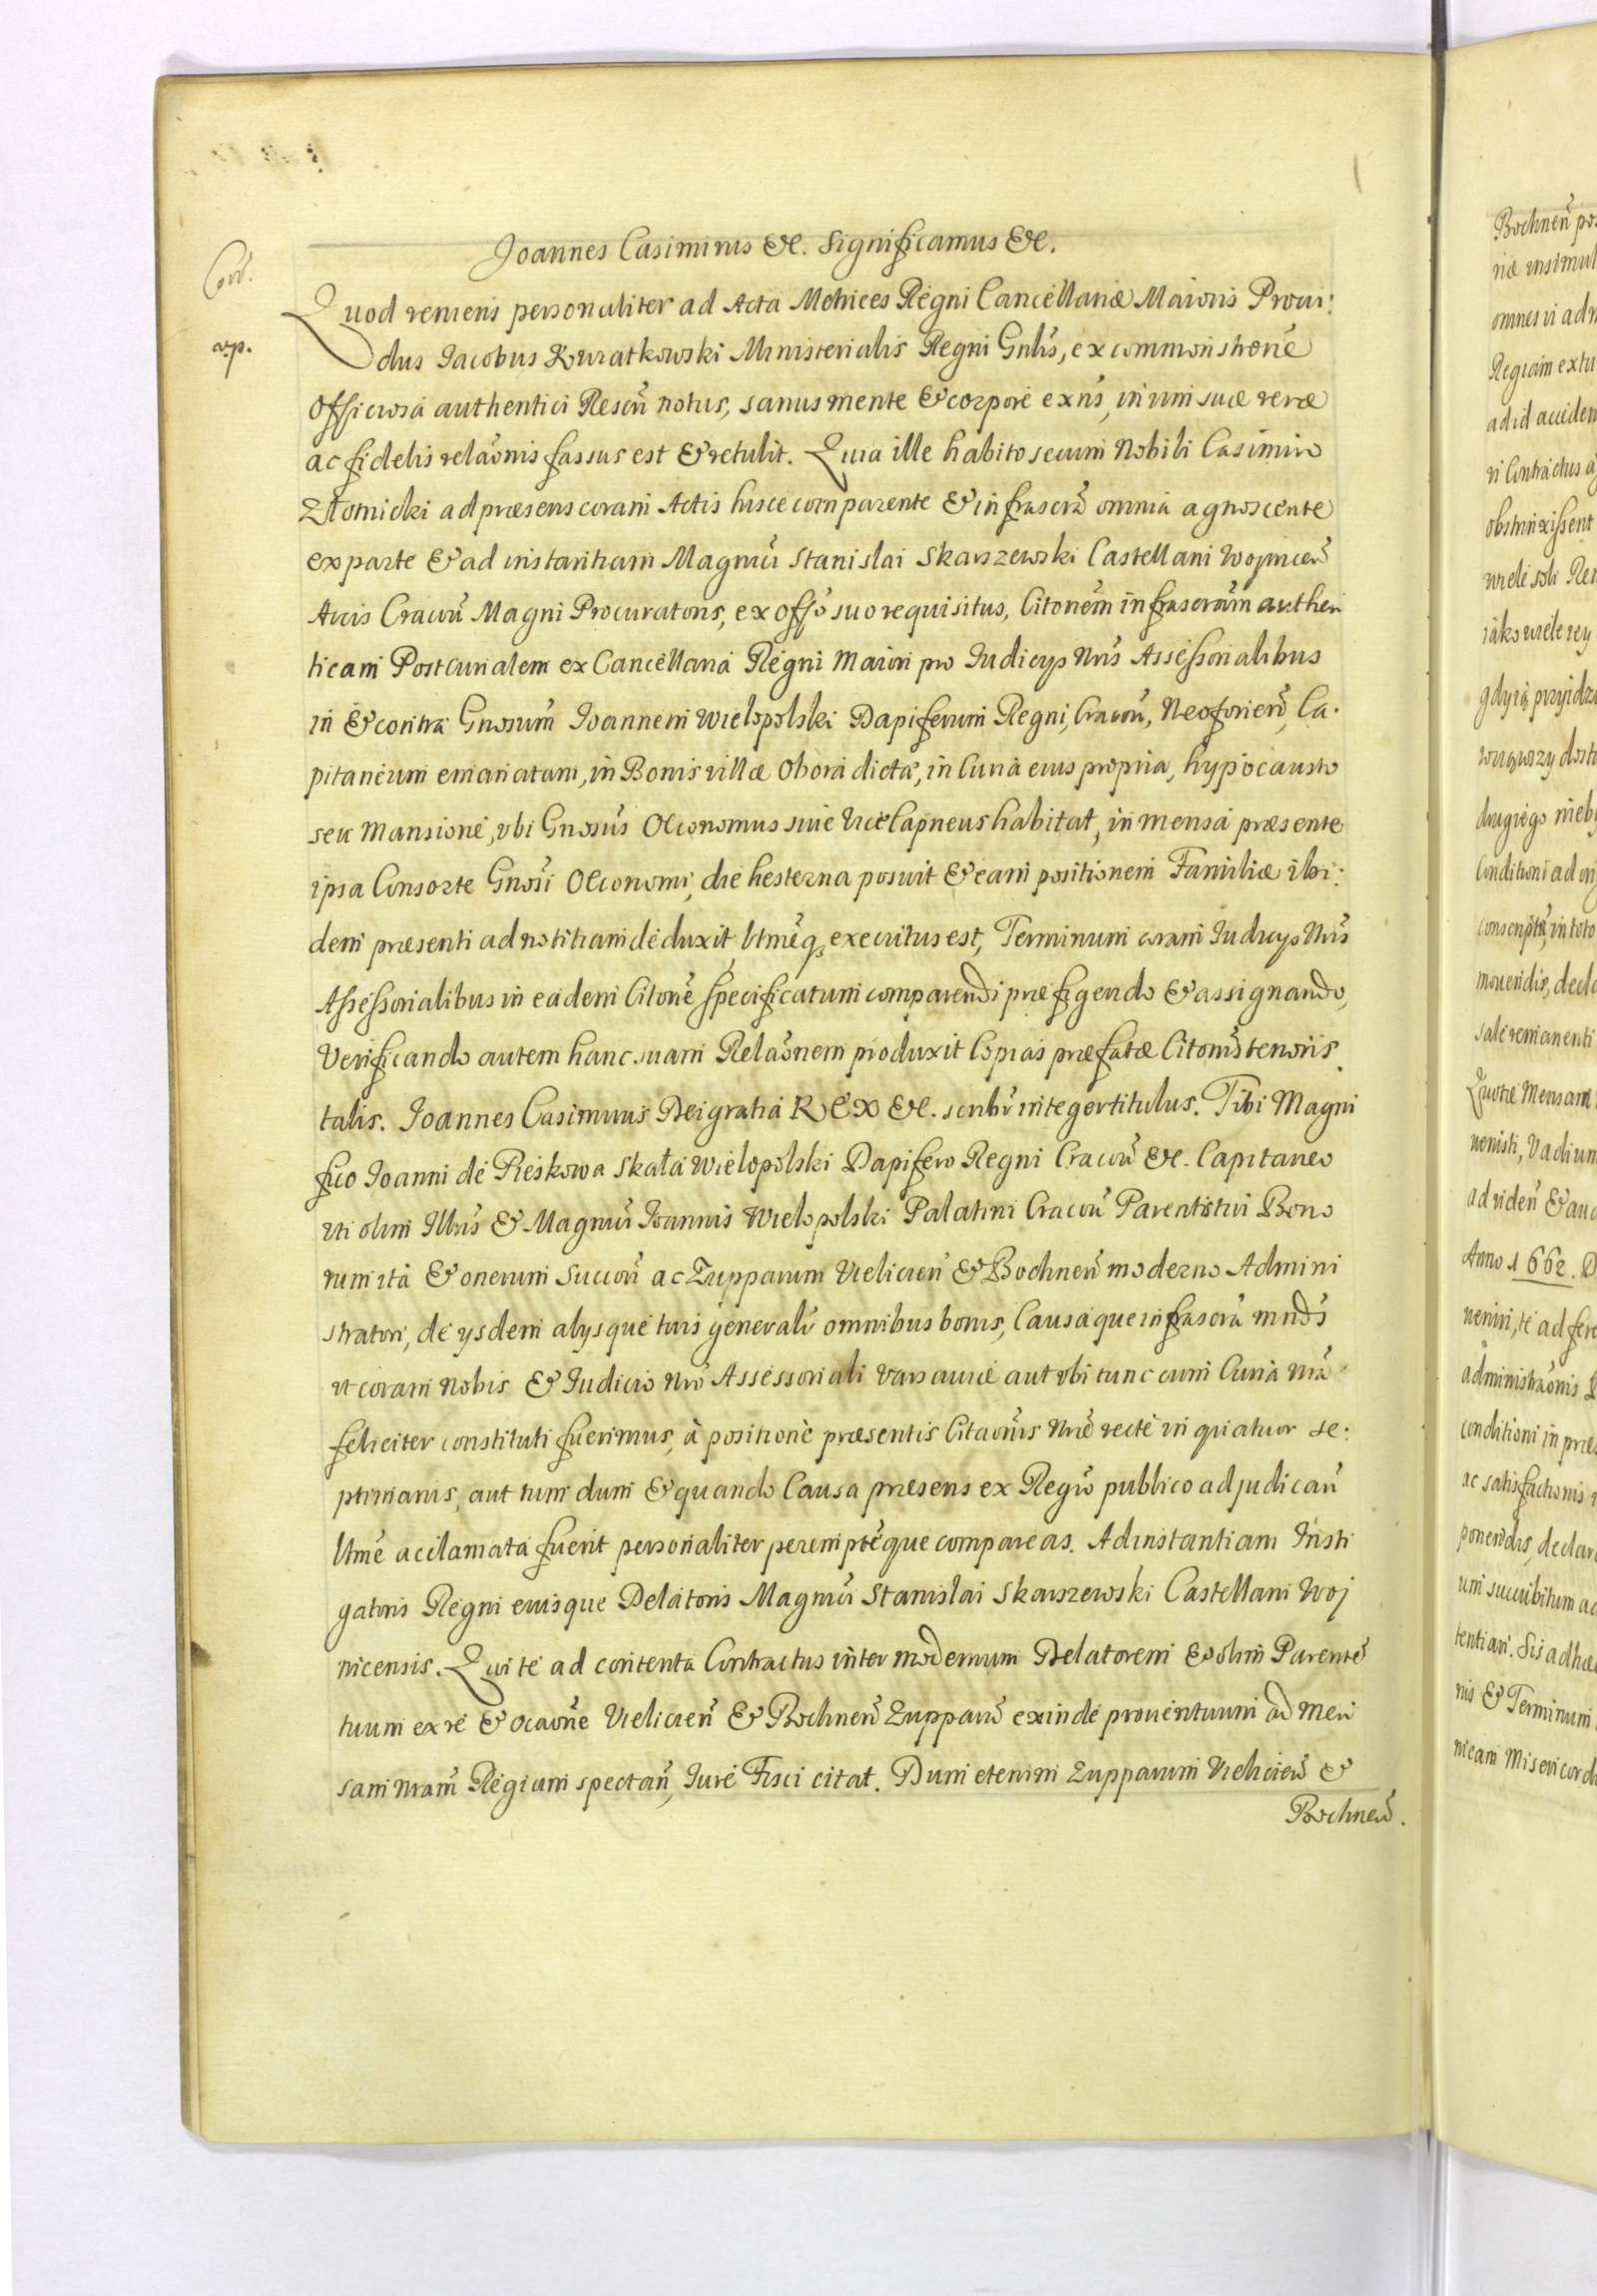 Joannes Casimirus &c. Significamus &c.
Cori.
Quod veniens personaliter ad Acta Metrices Regni Cancellariæ Maioris Provi:
ap.
dus Jacobus Kwiatkowski Ministerialis Regni Gnlis, ex commonstrone
Officiosa authentici Rescri notus, sanus mente & corpore exns, in vim suæ veræ
ac fidelis relaonis fassus est & retulit. Quia ille habito secum Nobili Casimiro
Złotnicki ad præsens coram Actis hisce comparente & infrascra omnia agnoscente
ex parte & ad instantiam Magnifici Stanislai Skarszewski Castellani Woynicen
Arcis Cracovi Magni Procuratoris, ex Offo suo requisitus, Citonem infrascram authen
ticam Postcurialem ex Cancellaria Regni Maiori pro Iudicys Nris Assessorialibus
in & contra Gnosum Joannem Wielopolski Dapiferum Regni, Cracou, Neoforien, Ca.
pitaneum emanatam, in Bonis villæ Obora dictæ, in Curia eius propria, hypocausto
seu Mansione, vbi Gnosus Oeconomus sive Vice Capneus habitat, in mensa præsente
ipsa Consorte Gnosi Oeconomi, die hesterna posuit & eam positionem Familiæ ibi:
dem præsenti ad notitiam deduxit, Ltmeq, executus est, Terminum coram Iudicys Nris
Assessorialibus in eadem Citone specificatum comparendi præfigendo & assignando,
Verificando autem hanc suam Relaonem produxit Copias præfatæ Citonis tenoris
talis. Joannes Casimirus Dei gratia REX &c. scribr integer titulus. Tibi Magni
fico Joanni de Pieskowa Skała Wielopolski Dapifero Regni Cracou &c. Capitaneo
vti olim Illris & Magnifici Joannis Wielopolski Palatini Cracou Parentis tui Bono
rum ita & onerum Succori ac Zupparum Vielicien & Bochnen moderno Admini
stratori, de ysdem alysque tuis generalr omnibus bonis, Causaque infrascra mnds
vt coram Nobis & Iudicio Nro Assessoriali Varsaviæ aut vbi tunc cum Curia Nra
feliciter constituti fuerimus, à positione præsentis Citaonis Nræ recte in quatuor se:
ptimanis, aut tum dum & quando Causa præsens ex Regro publico adjudican
Ltme acclamata fuerit personaliter peremptéque compareas. Ad instantiam Insti
gatoris Regni eiusque Delatoris Magnifici Stanislai Skarszewski Castellani Woj
nicensis. Qui te ad contenta Contractus inter modernum Delatorem & olim Parente
tuum ex re & ocaone Vielicien & Bochnen Zuppari exinde proventuum ad Men
sam Nram Regiam spectan, Iure Fisci citat. Dum etenim Zupparum Vielicien &
Bochnen.
Bochnen po
riæ instimul
omnes vi adm
Regiam extu
ad id acciden
vi Contractus
obstrinxissent
wiele soli
iako wiele
gdyią przyidz
drugiego nieb
Conditioni ad
conscripta, in toto
movendis, decla
sali remanenti
Quotæ Mensam
venisti, Vadium
ad viden & aud
Anno 1662. D
veniri, te ad fere
administraonis
conditioni in præs
ac satisfactionis
ponendis, declar
um succubitum ad
tentiari. Sis adhæ
nis & Terminum
nicam Misericordi